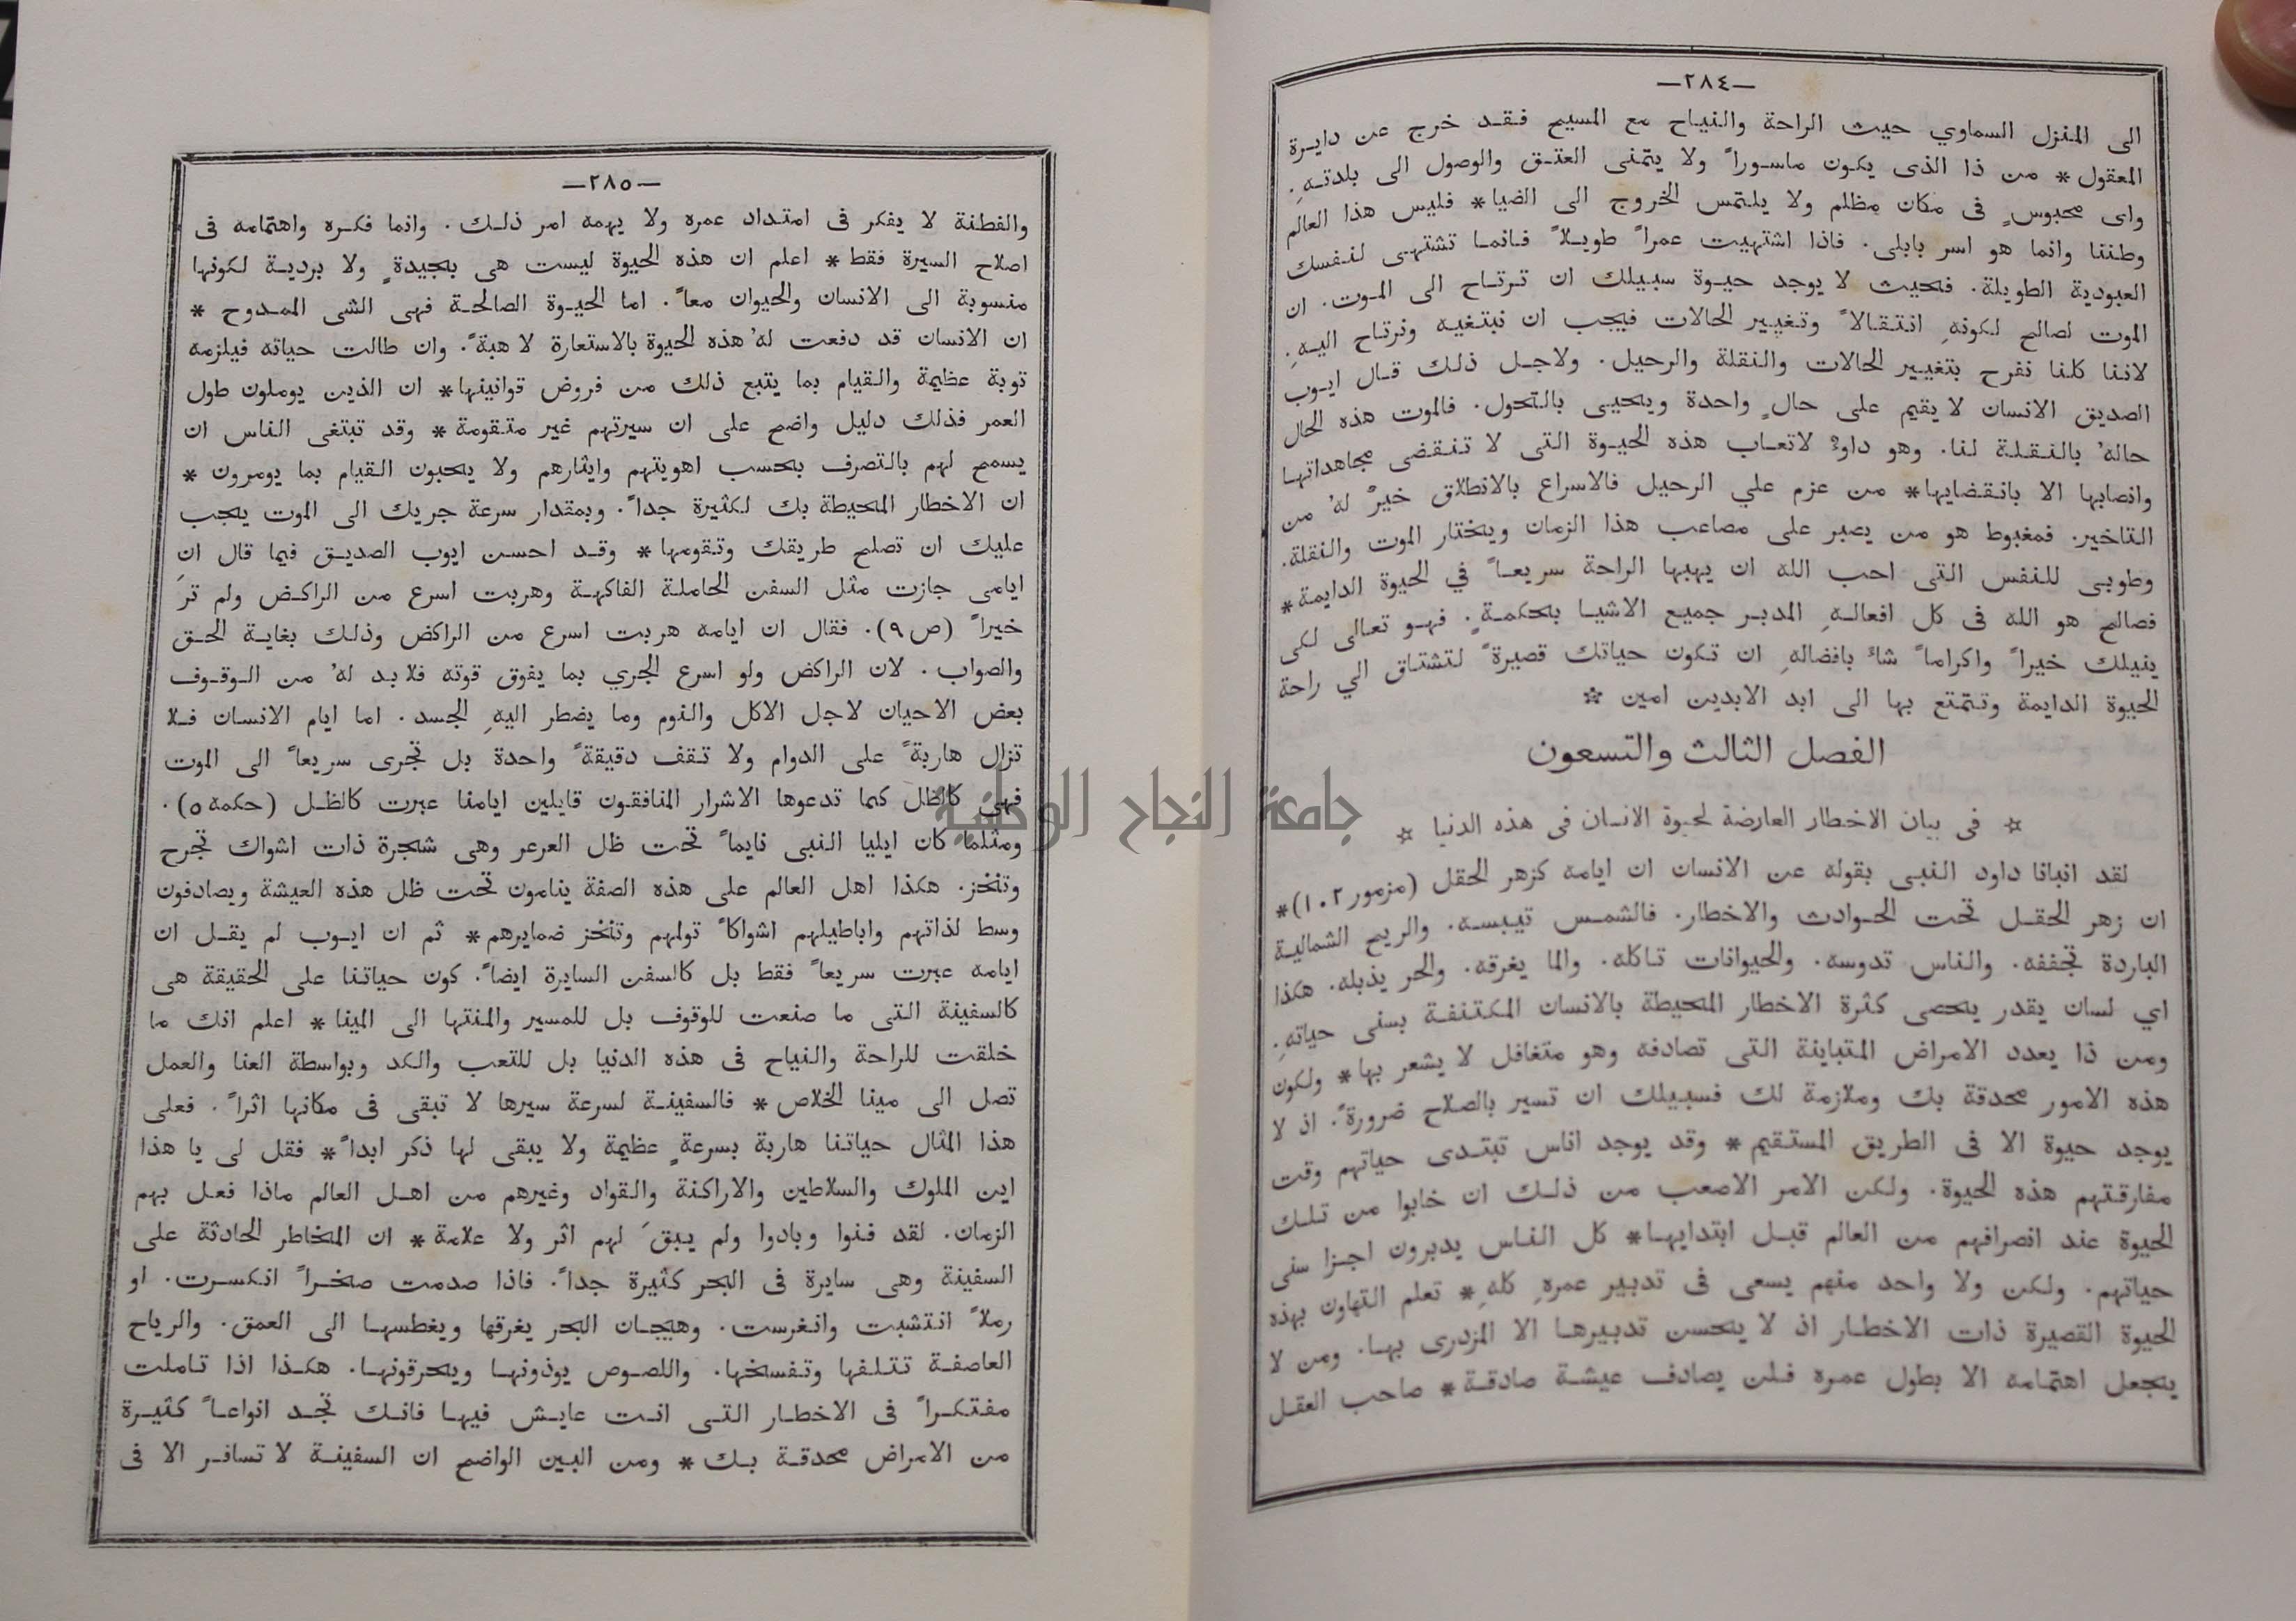 —٢٨٤—
الى المنزل السماوي حيث الراحة والنياح مع المسيح فقد خرج عن دايرة
المعقول* من ذا الذى يكون ماسوراً ولا يتمنى العتق والوصول الى بلدتهِ.
واى محبوسٍ فى مكان مظلم ولا يلتمس الخروج الى الضيا* فليس هذا العالم
وطننا وانما هو اسر بابلى. فاذا اشتهيت عمراً طويلاً فانما تشتهى لنفسك
العبودية الطويلة. فحيث لا يوجد حيوة سبيلك ان ترتاح الى الموت. ان
الموت لصالح لكونهِ انتقالاً وتغيير الحالات فيجب ان نبتغيه ونرتاح اليهِ.
لاننا كلنا نفرح بتغيير الحالات والنقلة والرحيل. ولاجل ذلك قال ايوب
الصديق الانسان لا يقيم على حالٍ واحدة ويحيى بالتحول. فالموت هذه الحال
حالهُ بالنقلة لنا. وهو داوٌ لاتعاب هذه الحيوة التى لا تنقضى مجاهداتها
وانصابها الا بانقضايها* من عزم علي الرحيل فالاسراع بالانطلاق خيرٌ لهُ من
التاخير. فمغبوط هو من يصبر على مصاعب هذا الزمان ويختار الموت والنقلة.
وطوبى للنفس التى احب الله ان يهبها الراحة سريعاً في الحيوة الدايمة*
فصالح هو الله فى كل افعالهِ المدبر جميع الاشيا بحكمةٍ. فهو تعالى لكى
ينيلك خيراً واكراماً شاءَ بافضالهِ ان تكون حياتك قصيرةً لتشتاق الي راحة
الحيوة الدايمة وتتمتع بها الى ابد الابدين امين ☆
الفصل الثالث والتسعون
☆ فى بيان الاخطار العارضة لحيوة الانسان فى هذه الدنيا ☆
لقد انبانا داود النبى بقوله عن الانسان ان ايامه كزهر الحقل (مزمور ١٠٢)*
ان زهر الحقل تحت الحوادث والاخطار. فالشمس تيبسه. والريح الشمالية
الباردة تجففه. والناس تدوسه. والحيوانات تاكله. والما يغرقه. والحر يذبله. هكذا
اي لسان يقدر يحصى كثرة الاخطار المحيطة بالانسان المكتنفة بسنى حياتهِ.
ومن ذا يعدد الامراض المتباينة التى تصادفه وهو متغافل لا يشعر بها* ولكون
هذه الامور محدقة بك وملازمة لك فسبيلك ان تسير بالصلاح ضرورةً. اذ لا
يوجد حيوة الا فى الطريق المستقيم* وقد يوجد اناس تبتدى حياتهم وقت
مفارقتهم هذه الحيوة. ولكن الامر الاصعب من ذلك ان خابوا من تلك
الحيوة عند انصرافهم من العالم قبل ابتدايها* كل الناس يدبرون اجزا سنى
حياتهم. ولكن ولا واحد منهم يسعى فى تدبير عمرهِ كلهِ* تعلم التهاون بهذه
الحيوة القصيرة ذات الاخطار اذ لا يحسن تدبيرها الا المزدرى بها. ومن لا
يجعل اهتمامه الا بطول عمره فلن يصادف عيشة صادقة* صاحب العقل
—٢٨٥—
والفطنة لا يفكر فى امتداد عمره ولا يهمه امر ذلك. وانما فكره واهتمامه فى
اصلاح السيرة فقط* اعلم ان هذه الحيوة ليست هى بجيدةٍ ولا بردية لكونها
منسوبة الى الانسان والحيوان معاً. اما الحيوة الصالحة فهى الشى الممدوح*
ان الانسان قد دفعت لهُ هذه الحيوة بالاستعارة لا هبةً. وان طالت حياته فيلزمه
توبة عظيمة والقيام بما يتبع ذلك من فروض قوانينها* ان الذين يوملون طول
العمر فذلك دليل واضح على ان سيرتهم غير متقومة* وقد تبتغى الناس ان
يسمح لهم بالتصرف بحسب اهويتهم وايثارهم ولا يحبون القيام بما يومرون*
ان الاخطار المحيطة بك لكثيرة جداً. وبمقدار سرعة جريك الى الموت يجب
عليك ان تصلح طريقك وتقومها* وقد احسن ايوب الصديق فيما قال ان
ايامى جازت مثل السفن الحاملة الفاكهة وهربت اسرع من الراكض ولم ترَ
خيراً (ص ٩). فقال ان ايامه هربت اسرع من الراكض وذلك بغاية الحق
والصواب. لان الراكض ولو اسرع الجري بما يفوق قوته فلا بد لهُ من الوقوف
بعض الاحيان لاجل الاكل والنوم وما يضطر اليهِ الجسد. اما ايام الانسان فلا
تزال هاربةً على الدوام ولا تقف دقيقةً واحدة بل تجرى سريعاً الى الموت
فهى كالظل كما تدعوها الاشرار المنافقون قايلين ايامنا عبرت كالظل (حكمه ٥).
ومثلما كان ايليا النبى نايماً تحت ظل العرعر وهى شجرة ذات اشواك تجرح
وتنخز. هكذا اهل العالم على هذه الصفة ينامون تحت ظل هذه العيشة ويصادفون
وسط لذاتهم واباطيلهم اشواكاً تولمهم وتنخز ضمايرهم* ثم ان ايوب لم يقل ان
ايامه عبرت سريعاً فقط بل كالسفن السايرة ايضاً. كون حياتنا على الحقيقة هى
كالسفينة التى ما صنعت للوقوف بل للمسير والمنتها الى المينا* اعلم انك ما
خلقت للراحة والنياح فى هذه الدنيا بل للتعب والكد وبواسطة العنا والعمل
تصل الى مينا الخلاص* فالسفينة لسرعة سيرها لا تبقى فى مكانها اثراً. فعلى
هذا المثال حياتنا هاربة بسرعةٍ عظيمة ولا يبقى لها ذكر ابداً* فقل لى يا هذا
اين الملوك والسلاطين والاراكنة والقواد وغيرهم من اهل العالم ماذا فعل بهم
الزمان. لقد فنوا وبادوا ولم يبقَ لهم اثر ولا علامة* ان المخاطر الحادثة على
السفينة وهى سايرة فى البحر كثيرة جداً. فاذا صدمت صخراً انكسرت. او
رملاً انتشبت وانغرست. وهيجان البحر يغرقها ويغطسها الى العمق. والرياح
العاصفة تتلفها وتفسخها. واللصوص يوذونها ويحرقونها. هكذا اذا تاملت
مفتكراً فى الاخطار التى انت عايش فيها فانك تجد انواعاً كثيرة
من الامراض محدقة بك* ومن البين الواضح ان السفينة لا تسافر الا فى
جامعة النجاح الوطنية